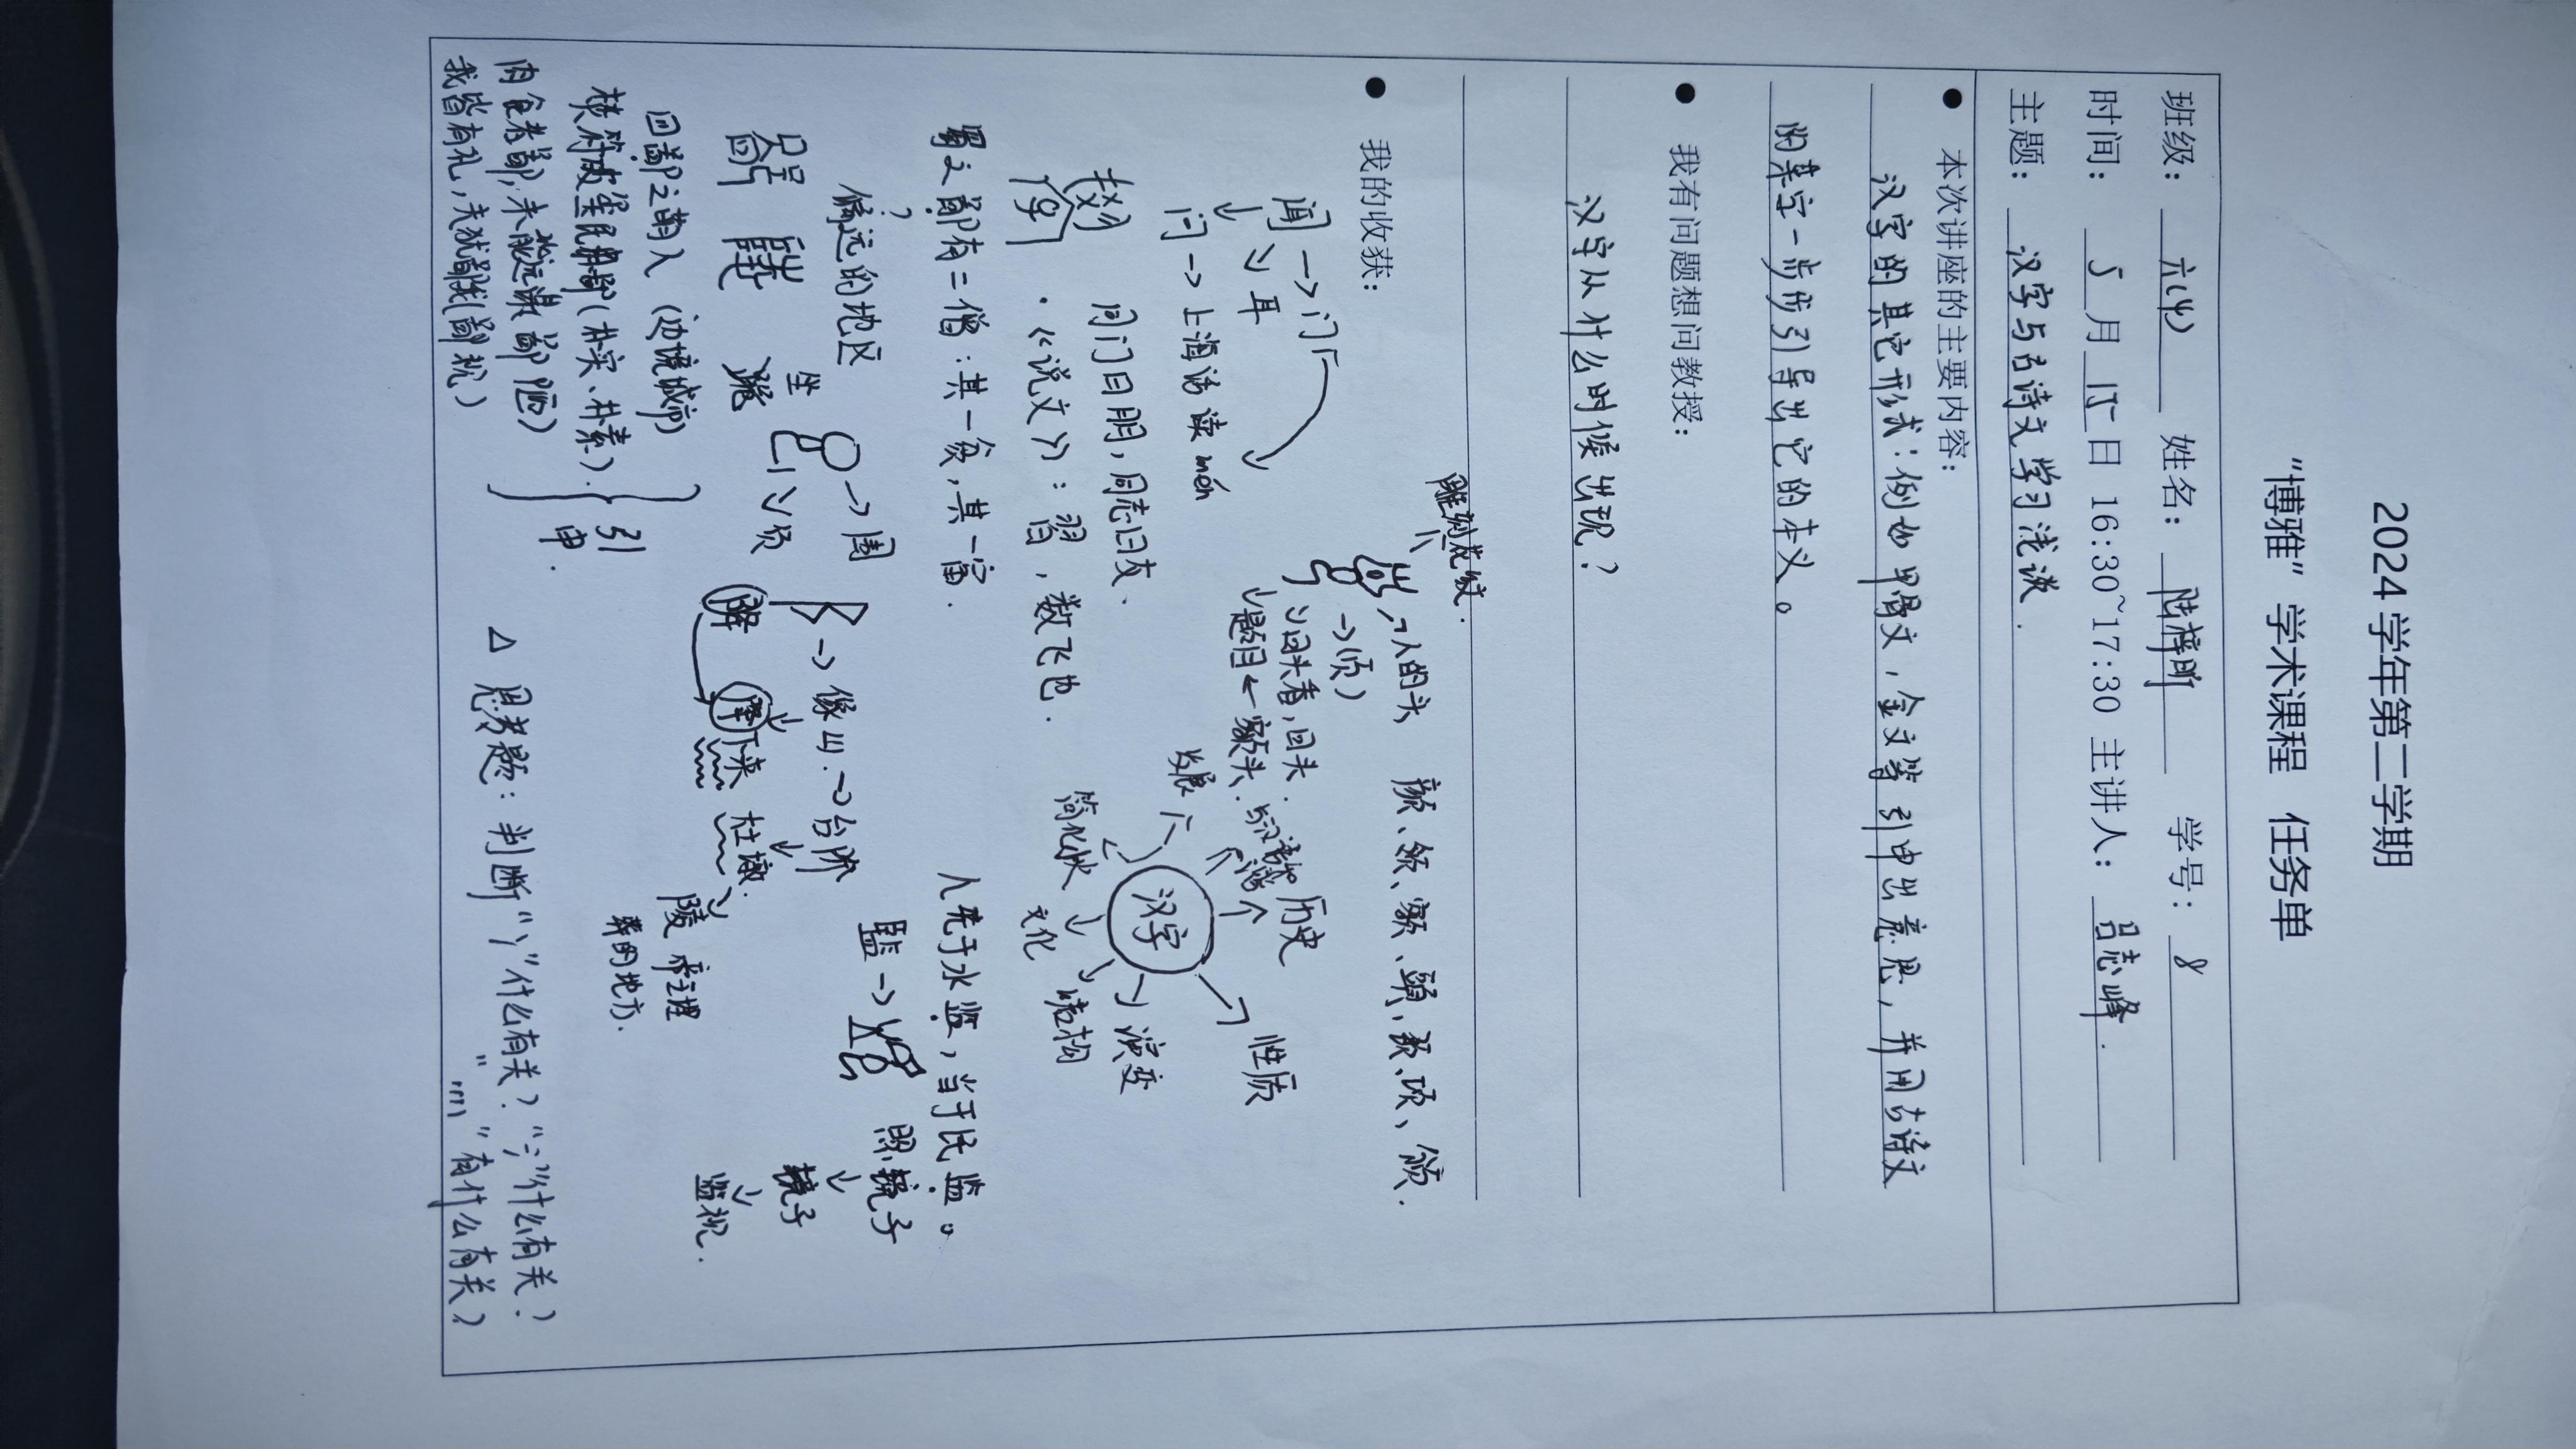 2024学年第二学期
“博雅”学术课程 任务单
班级: 六(4) 姓名: 陆梓昕 学号: 8
时间: 5月15日 16:30~17:30 主讲人: 吕志峰.
主题: 汉字与古诗文学习浅谈.
● 本次讲座的主要内容:
汉字的其它形式:例如甲骨文,金文等引申出意思,并用古诗文
的某字一步步引导出它的本义。
● 我有问题想问教授:
汉字从什么时候出现?
● 我的收获:
雕刻花纹.
闻→门
耳
问→上海话读mén
→人的头
→(页)
回头看,回头.
题目←额头.
颜、领、额、頭、颈、项、颔.
同门曰朋,同志曰友.
·《说文》:習,数飞也.
汉字
历史
性质
演变
结构
文化
简化
发展
蜀之鄙有二僧:其一贫,其一富.
?
偏远的地区
人先于水监,当于民监。
→围
坐
→页
→像山.→台阶
監→
照镜子
镜子
监视.
降下来
陵 帝王埋
葬的地方.
回鄙之萌人(边境城市)
(朴实、朴素).
引
申.
肉食者鄙,未能远谋(鄙陋)
我皆有礼,夫犹鄙我(鄙视)
△ 思考题:判断“冫”什么有关?“氵”什么有关?
“灬”有什么有关?